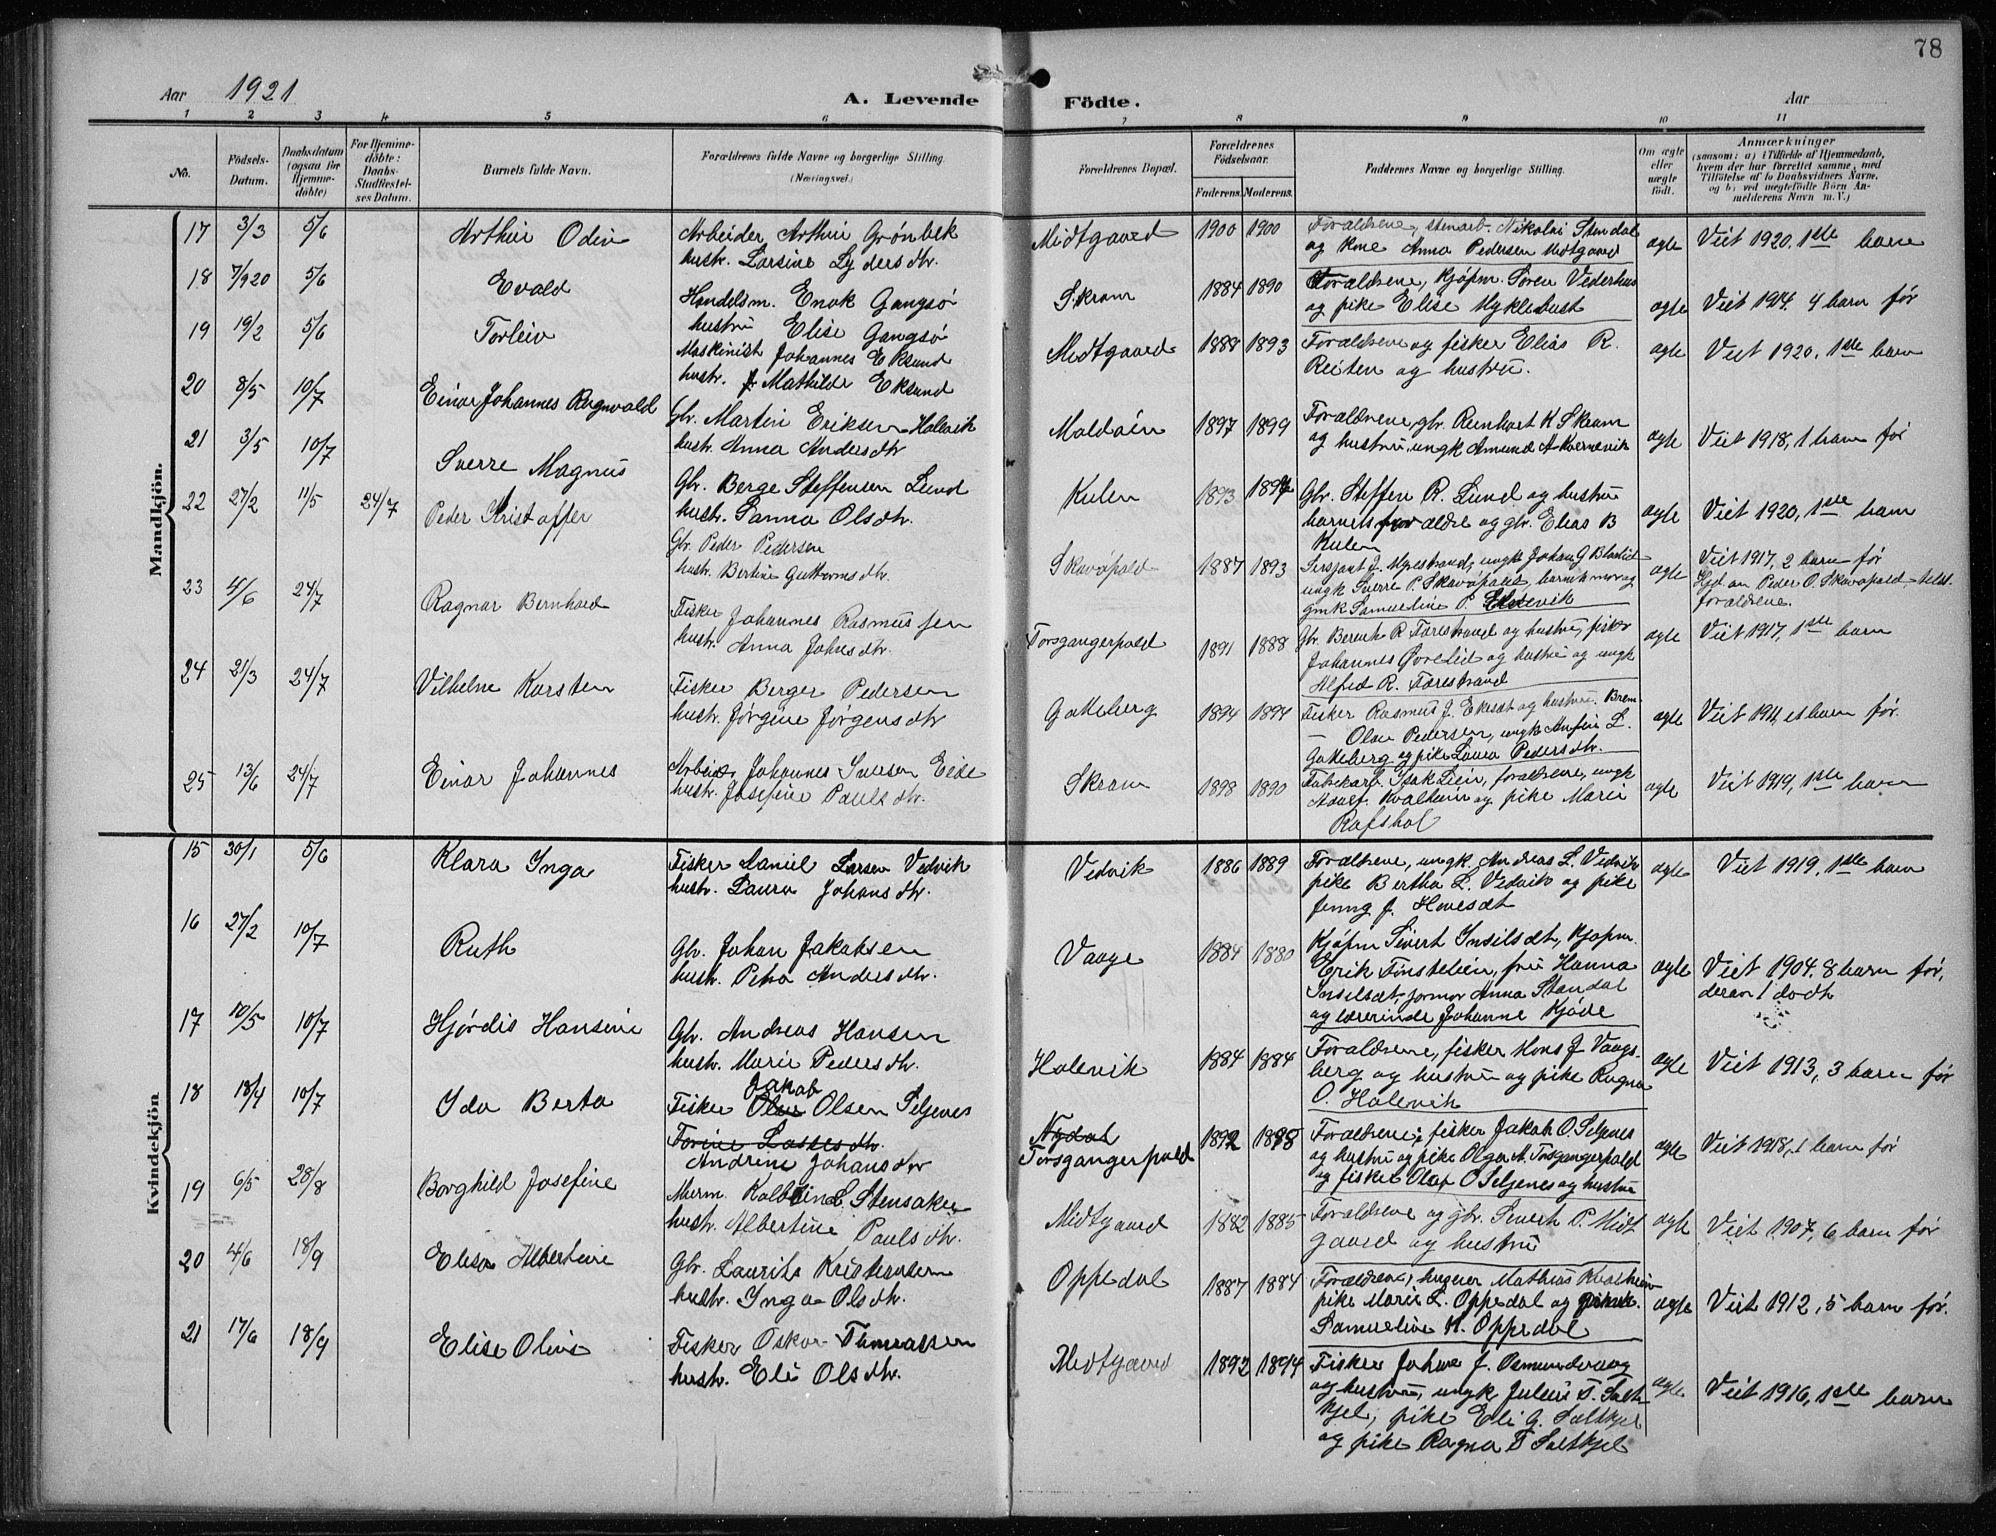 78
Aar 1921
A. Levende Födte.
Aar
1 2 3 4 5 6 7 8 9 10 11
No.
Födsels-Datum.
Daabsdatum (ogsaa for Hjemme-döbte)
For Hjemme-döbte: Daabs-Stadfæstel-ses Datum.
Barnets fulde Navn.
Forældrenes fulde Navne og borgerlige Stilling.
(Næringsvei.)
Forældrenes Bopæl.
Forældrenes Födselsaar.
Faderens. Moderens.
Faddernes Navne og borgerlige Stilling.
Om ægte eller uægte födt.
Anmærkninger
(saasom: a) i Tilfælde af Hjemmedaab, hvem der har forrettet samme, med Tilföielse af to Daabsvidners Navne, og b) ved uegtefödte Börn An-melderens Navn m. V.)
Mandkjön.
17 3/3 5/6 Arthur Odin
Arbeider Arthur Grønbek
hustr. Larsine Lydersdtr.
Midtgaard 1900 1900
Forældrene, stenarb. Nikolai Stendal
og kone Anna Pedersen Midtgaard
ægte Viet 1920. 1ste barn
18 7/920 5/6 Evald
Handelsm. Enok Gangsø
hustru Elise Gangsø
Skram 1884 1890
Forældrene, kjøpm. Søren Vederhus
og pike Elise Myklebust
ægte Viet 1914. 4 barn før
19 19/2 5/6 Torleiv
Maskinist Johannes Eksund
hustr. Mathilde Eksund
Midtgaard 1888 1893
Forældrene og fisker Elias R.
Reiten og hustru.
ægte Viet 1920, 1ste barn
20 8/5 10/7 Einar Johannes Ragnvald
Gbr. Martin Eriksen Halevik
hustr. Anna Andersdtr
Maldøin 1897 1899
Forældrene, gbr. Reinhart K Skram
og hustru, ungk Amund A Kvernevik
ægte Viet 1918, 1 barn før
21 3/5 10/7 Sverre Magnus
Gbr. Berge Steffensen Lund
hustr. Sanna Olsdtr.
Kulen 1893 1896
Gbr. Steffen R. Lund og hustru
barnets forældre og gbr. Elias B
Kulen
ægte Viet 1920, 1ste barn
22 27/2 11/5 24/7 Peder Kristoffer
Gbr. Peder Pedersen
hustr. Bertine Guttormsdtr.
Skavøpold 1887 1893
Sersjant J. Myrestrand, ungk Johan G
ungk Sverre P. Skavøpold, barnets mor og
gmk Samueline P.
ægte Viet 1917, 2 barn før
Hjd av Peder O. Skavøpold
forældrene.
23 4/6 24/7 Ragnar Bernhard
Fisker Johannes Rasmussen
hustr. Anna Johnsdtr.
Torsgangerpold 1891 1888
Gbr. Bernt R Færestrand og hustru, fisker
Johannes Øvrelid og hustru og ungk
Alfred R. Færestrand
ægte Viet 1917, 1ste barn
24 21/3 24/7 Vilhelm Karsten
Fisker Berger Pedersen
hustr. Jørgine Jørgensdtr
Gotteberg 1894 1894
Fisker Rasmus J. og hustru. Brem-
— Olav Pedersen, ungk Anfin L.
Gotteberg og pike Laura Pedersdtr.
ægte Viet 1911, et barn før.
25 13/6 24/7 Einar Johannes
Arbeider Johannes Iversen Eide
hustr. Josefine Paulsdtr.
Skram 1898 1890
Fabrikarb. Isak Lien, forældrene, ungk
Adolf Kvalheim og pike Marie
Rafshol
ægte Viet 1919, 1ste barn
Kvindekjön
15 30/1 5/6 Klara Inga
Fisker Daniel Larsen Vedvik
hustr. Laura Johansdtr.
Vedvik 1886 1889
Forældrene, ungk. Andreas L. Vedvik
pike Bertha L. Vedvik og pike
Jenny J. Hovesæt
ægte Viet 1919, 1ste barn
16 27/2 10/7 Ruth
Gbr. Johan Jakobsen
hustr. Petra Andersdtr.
Vaage 1884 1880
Kjøpm Sivert Insilsæt, kjøpm.
Erik Tinstelien, fru Hanna
Insilsæt, jormor Anna Standal
og lærerinde Johanne Kjøde
ægte Viet 1904. 8 barn før,
derav 1 dødt
17 10/5 10/7 Hjørdis Hansine
Gbr. Andreas Hansen
hustr. Marie Pedersdtr.
Halevik 1884 1884
Forældrene, fisker Mons J Vaags-
berg og hustru og pike Ragna
O. Halevik
ægte Viet 1913, 3 barn før
18 18/4 10/7 Ida Berta
Jakob
Fisker Olai Olsen Seljenes
Torine Lassesdtr.
Andrine Johansdtr
Nydal
Torsgangerpold 1892 1898
Forældrene, fisker Jakob O. Seljenes
og hustru og pike Olga A. Torsgangerpold
og fisker Olaf O Seljenes og hustru
ægte Viet 1918, 1 barn før
19 6/5 28/8 Borghild Josefine
Murm. Kolbein L. Stensaker
hustr. Albertine Paulsdtr.
Midtgaard 1882 1885
Forældrene og gbr. Sivert P. Midt
gaard og hustru
ægte Viet 1907, 6 barn før
20 4/6 18/9 Elisa Albertine
Gbr. Laurits Kristiansen
hustr. Inga Olsdtr.
Oppedal 1887 1884
Forældrene, Mathias Kvalheim
pike Marie L. Oppedal og
Samueline M. Oppedal
ægte Viet 1912, 5 barn før.
21 17/6 18/9 Elise Olivie
Fisker Oskar Thomassen
hustr. Eli Olsdtr.
Midtgaard 1892 1894
Fisker Johan J. Osmundsvaag
og hustru, ungk Julius T. Salt-
kjel, pike Eli G. Saltkjel
og pike Ragna T Saltkjel
ægte Viet 1916, 1ste barn